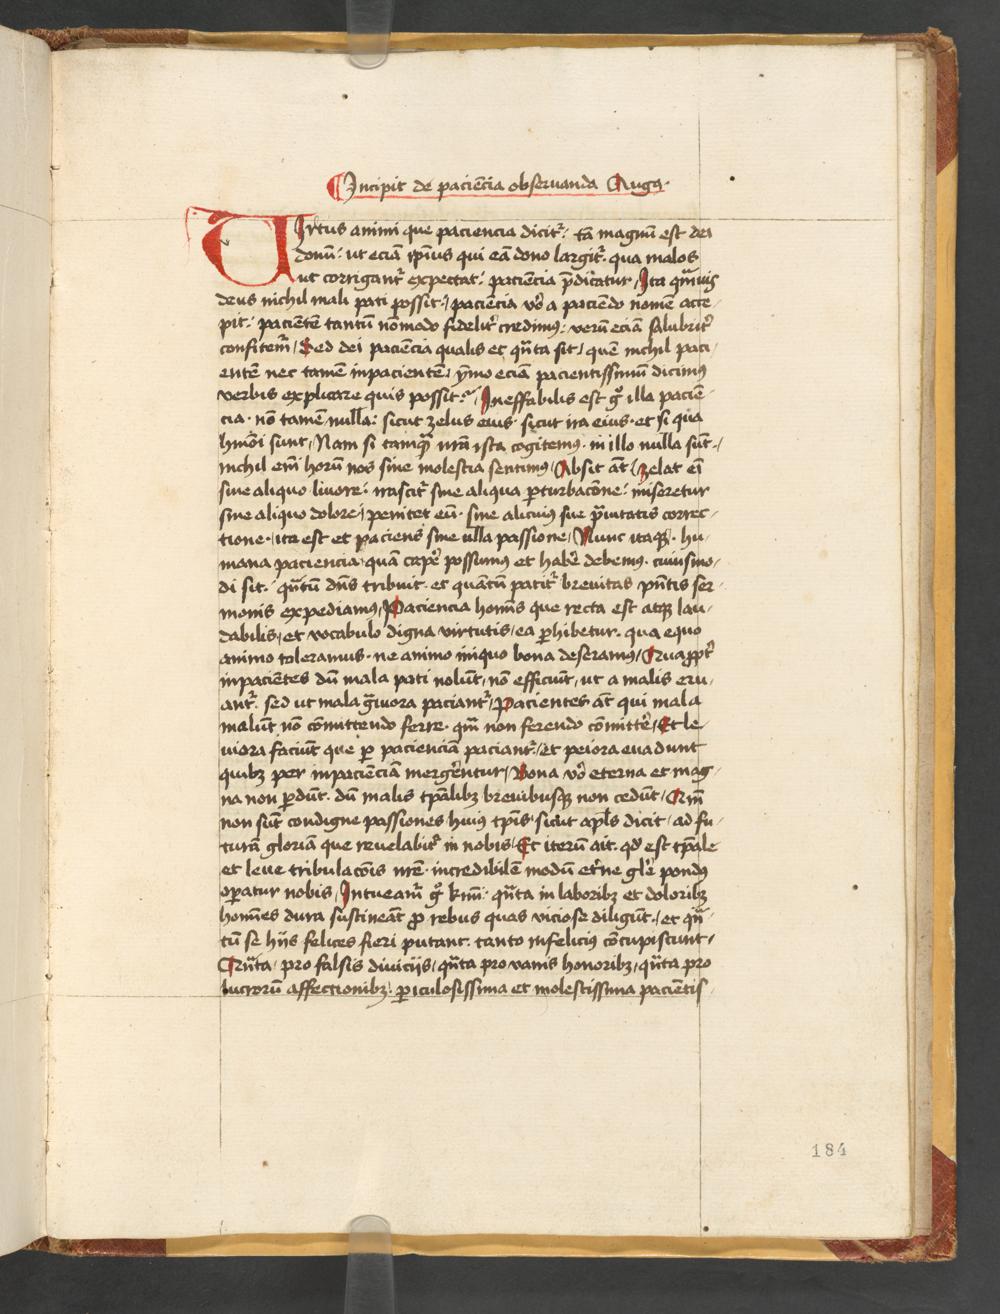 Incipit de paciencia obseruanda Augꝯ.
Uirtus animi que paciencia dicit᷑: tā magnū est dei
donū: ut eciā ip̄ius qui eā dono largit᷑. qua malos
ut corrigant᷑ expectat: paciencia p̄dicatur / Ita quāuis
deus nichil mali pati possit / paciencia v̊o a paciendo nomē acce-
pit: pacientē tantū nōmodo fidelit᷑ credimꝰ: verū eciā salubrit᷑
confitem᷑ / Sed dei paciencia qualis et quāta sit / quē nichil paci-
entē nec tamē inpacientē / ymo eciā pacientissimū dicimꝰ
verbis explicare quis possit: / Ineffabilis est gͦ illa paciē-
cia. nō tamē nulla: sicut zelus eius. sicut ira eius. et si qua
hmōi sunt / Nam si tamqꝫ nr̄a ista cogitemꝰ. in illo nulla sūt. /
nichil em̄ horū nos sine molestia sentimꝰ / Absit āt / zelat em̄
sine aliquo liuore: irascit᷑ sine aliqua ꝑturbacōne: miseretur
sine aliquo dolore / penitet eū. sine alicuius sue p̄uitatis correc-
tione. ita est et paciens sine ulla passione / Nunc itaqꝫ. hu-
mana paciencia quam caꝑe possumꝰ et habe᷑ debemꝰ. cuiusmo-
di sit. quātū dn̄s tribuit. et quantū patit᷑ breuitas pn̄tis ser-
monis expediamꝰ / Paciencia homīs que recta est atqꝫ lau-
dabilis / et vocabulo digna virtutis / ea ꝑhibetur. qua equo
animo toleramus. ne animo iniquo bona deseramꝰ / Quapp̄t᷑
inpacientes dū mala pati nolūt / nō efficiūt / ut a malis eru-
ant᷑. sed ut mala g̈uiora paciant᷑ / Pacientes āt qui mala
malūt nō cōmittendo ferre. qm̄ non ferendo cōmitte᷑ / Et le-
uiora faciūt que ꝑ pacienciā paciant᷑ / Et peiora euadunt
quibꝫ per inpacienciā mergerentur / Bona v̊o eterna et mag-
na non ꝑdūt. dū malis tꝑalibꝫ breuibusqꝫ non cedūt / Qm̄
non sūt condigne passiones huiꝰ tp̄is. sicut apl̄s dicit. ad fu-
turā gloriā que reuelabit᷑ in nobis / Et iterū ait. qd̓ est tꝑale
et leue tribulacōis nr̄e. incredibilē modū et᷑ne gl̄e pondꝰ
oꝑatur nobis / Intueam᷑ gͦ kmī. quāta in laboribꝫ et doloribꝫ
homīes dura sustineāt ꝓ rebus quas viciose diligūt. / et quā-
tū se hijs felices fieri putant. tanto infeliciꝰ cōcupiscunt /
Quāta. pro falsis diuicijs / quāta pro vanis honoribꝫ / quāta pro
lucrorū affectionibꝫ: ꝑiculosissima et molestissima pacientis-
184